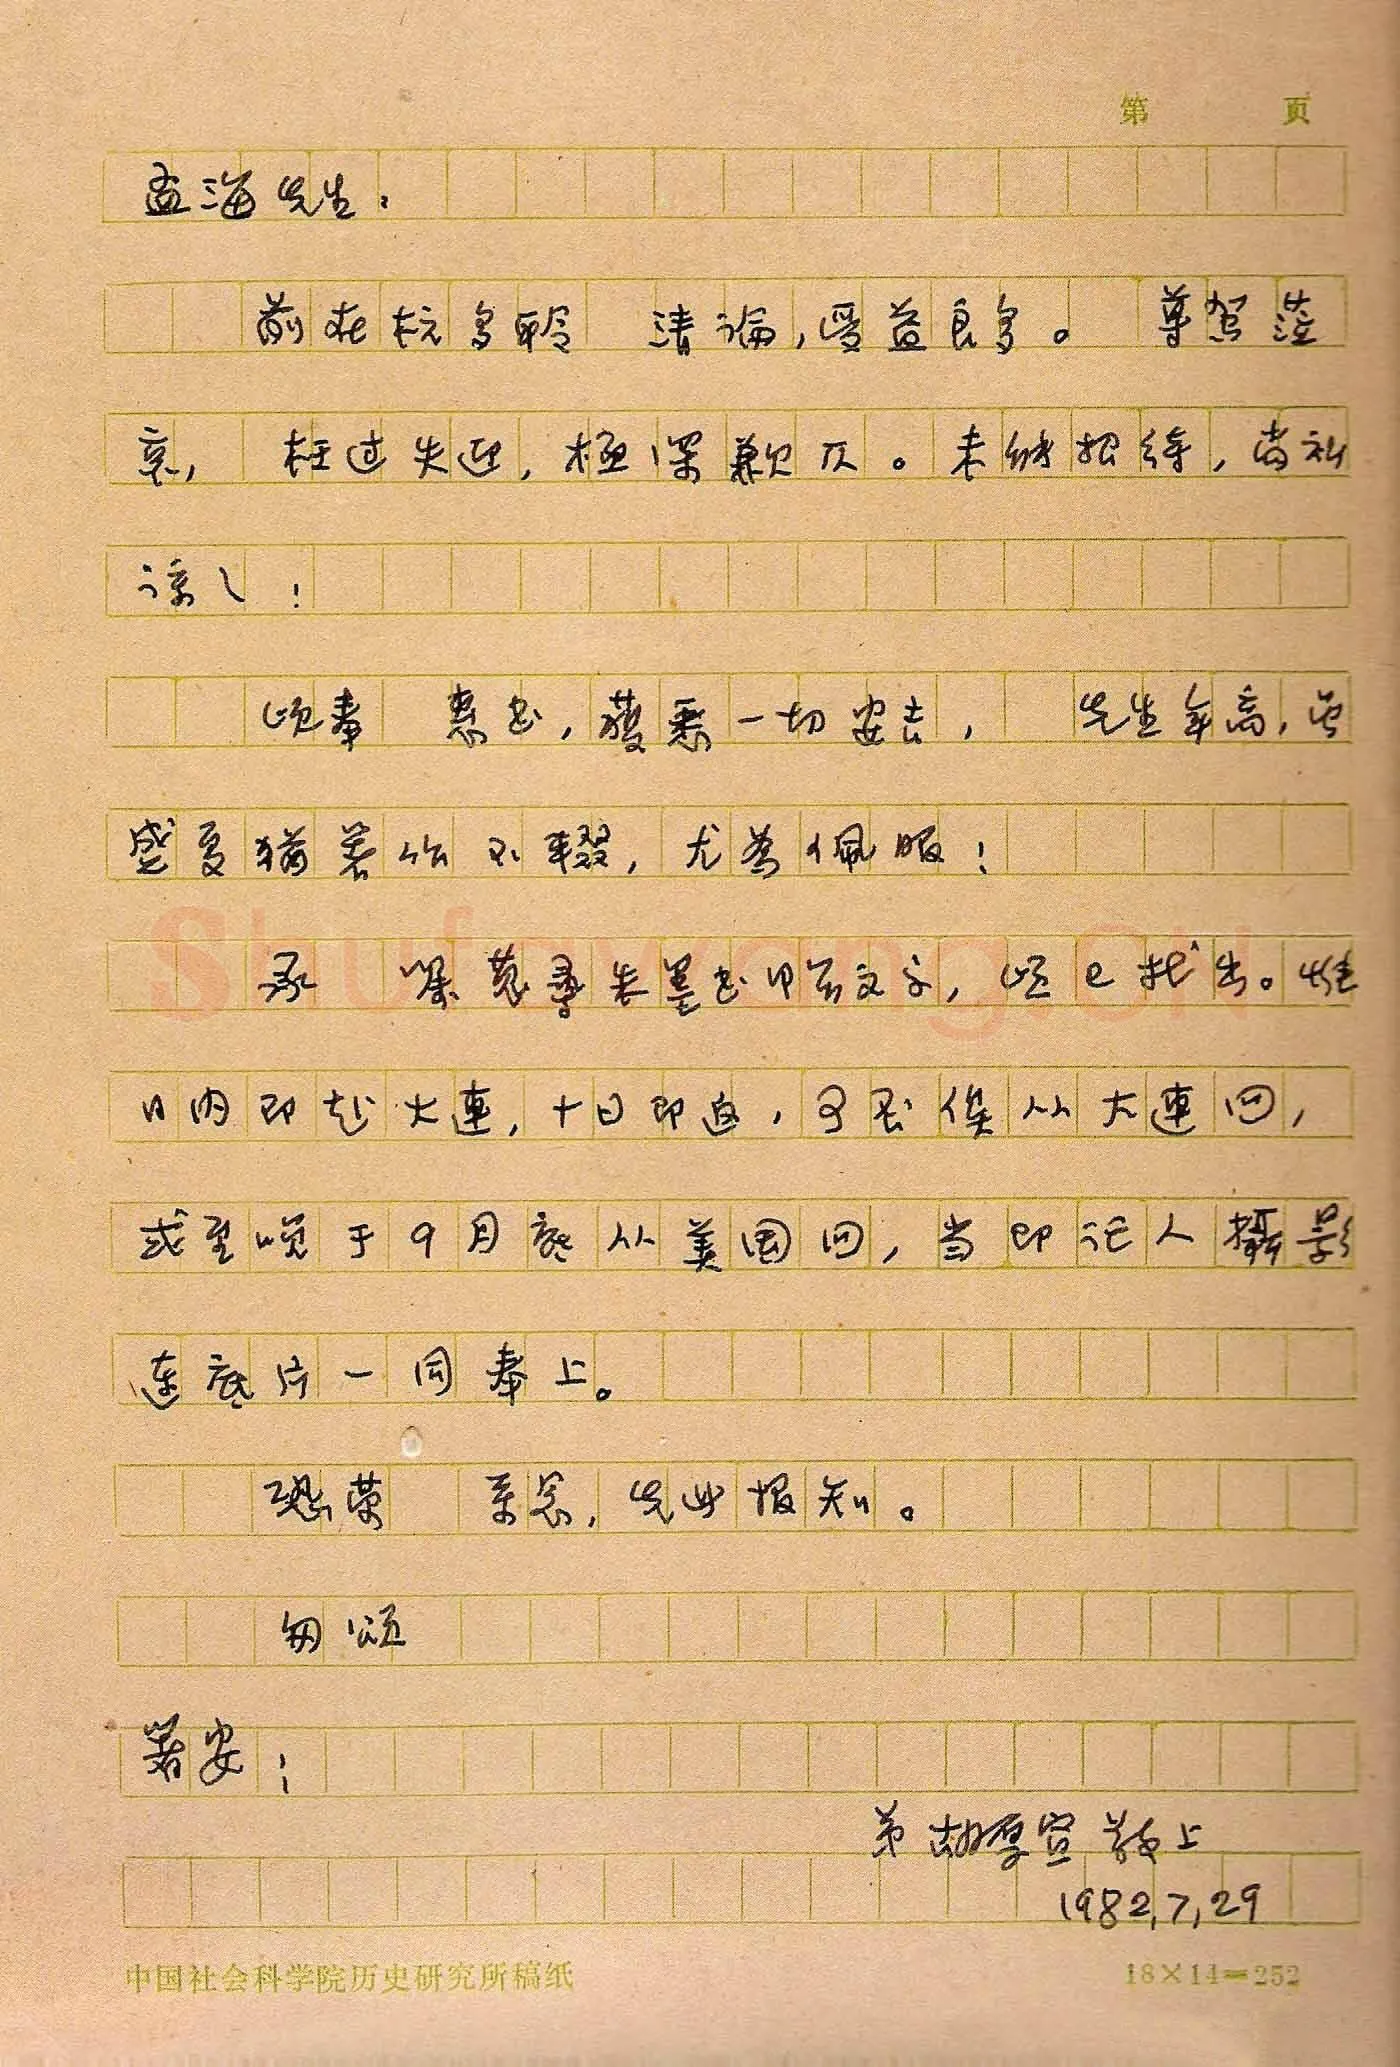 第 页
孟海先生：
前在杭多聆 清论，受益良多。 尊驾莅
京， 枉过失迎，极深歉仄。未能招待，尚祈
谅之！
顷奉 惠书，获悉一切安吉， 先生年高，当
盛夏犹著作不辍，尤为佩服！
承 嘱觅寻朱墨书甲骨文字，顷已找出。惟
日内即赴大连，十日即返，可否俟从大连回，
或至晚于9月底从美国回，当即记人摄影
连底片一同奉上。
恐荣 系念，先此报知。
匆颂
著安！
弟胡厚宣敬上
1982,7,29
中国社会科学院历史研究所稿纸
18×14=252
Shufawang.CN